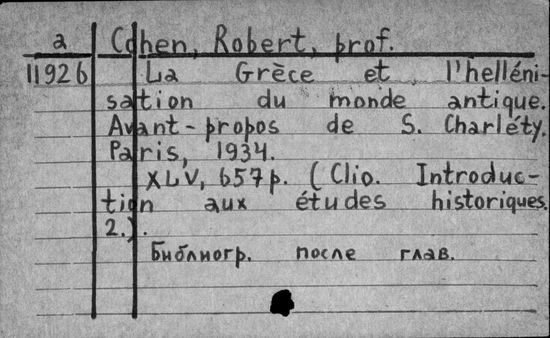 a Cohen, Robert, prof.
11926 La Grèce et l'helléni-
sation du monde antique.
Avant-propos de S. Charléty.
Paris, 1934.
XLV, 657 p. (Clio. Introduc-
tion aux études historiques.
2.).
Библиогр. после глав.